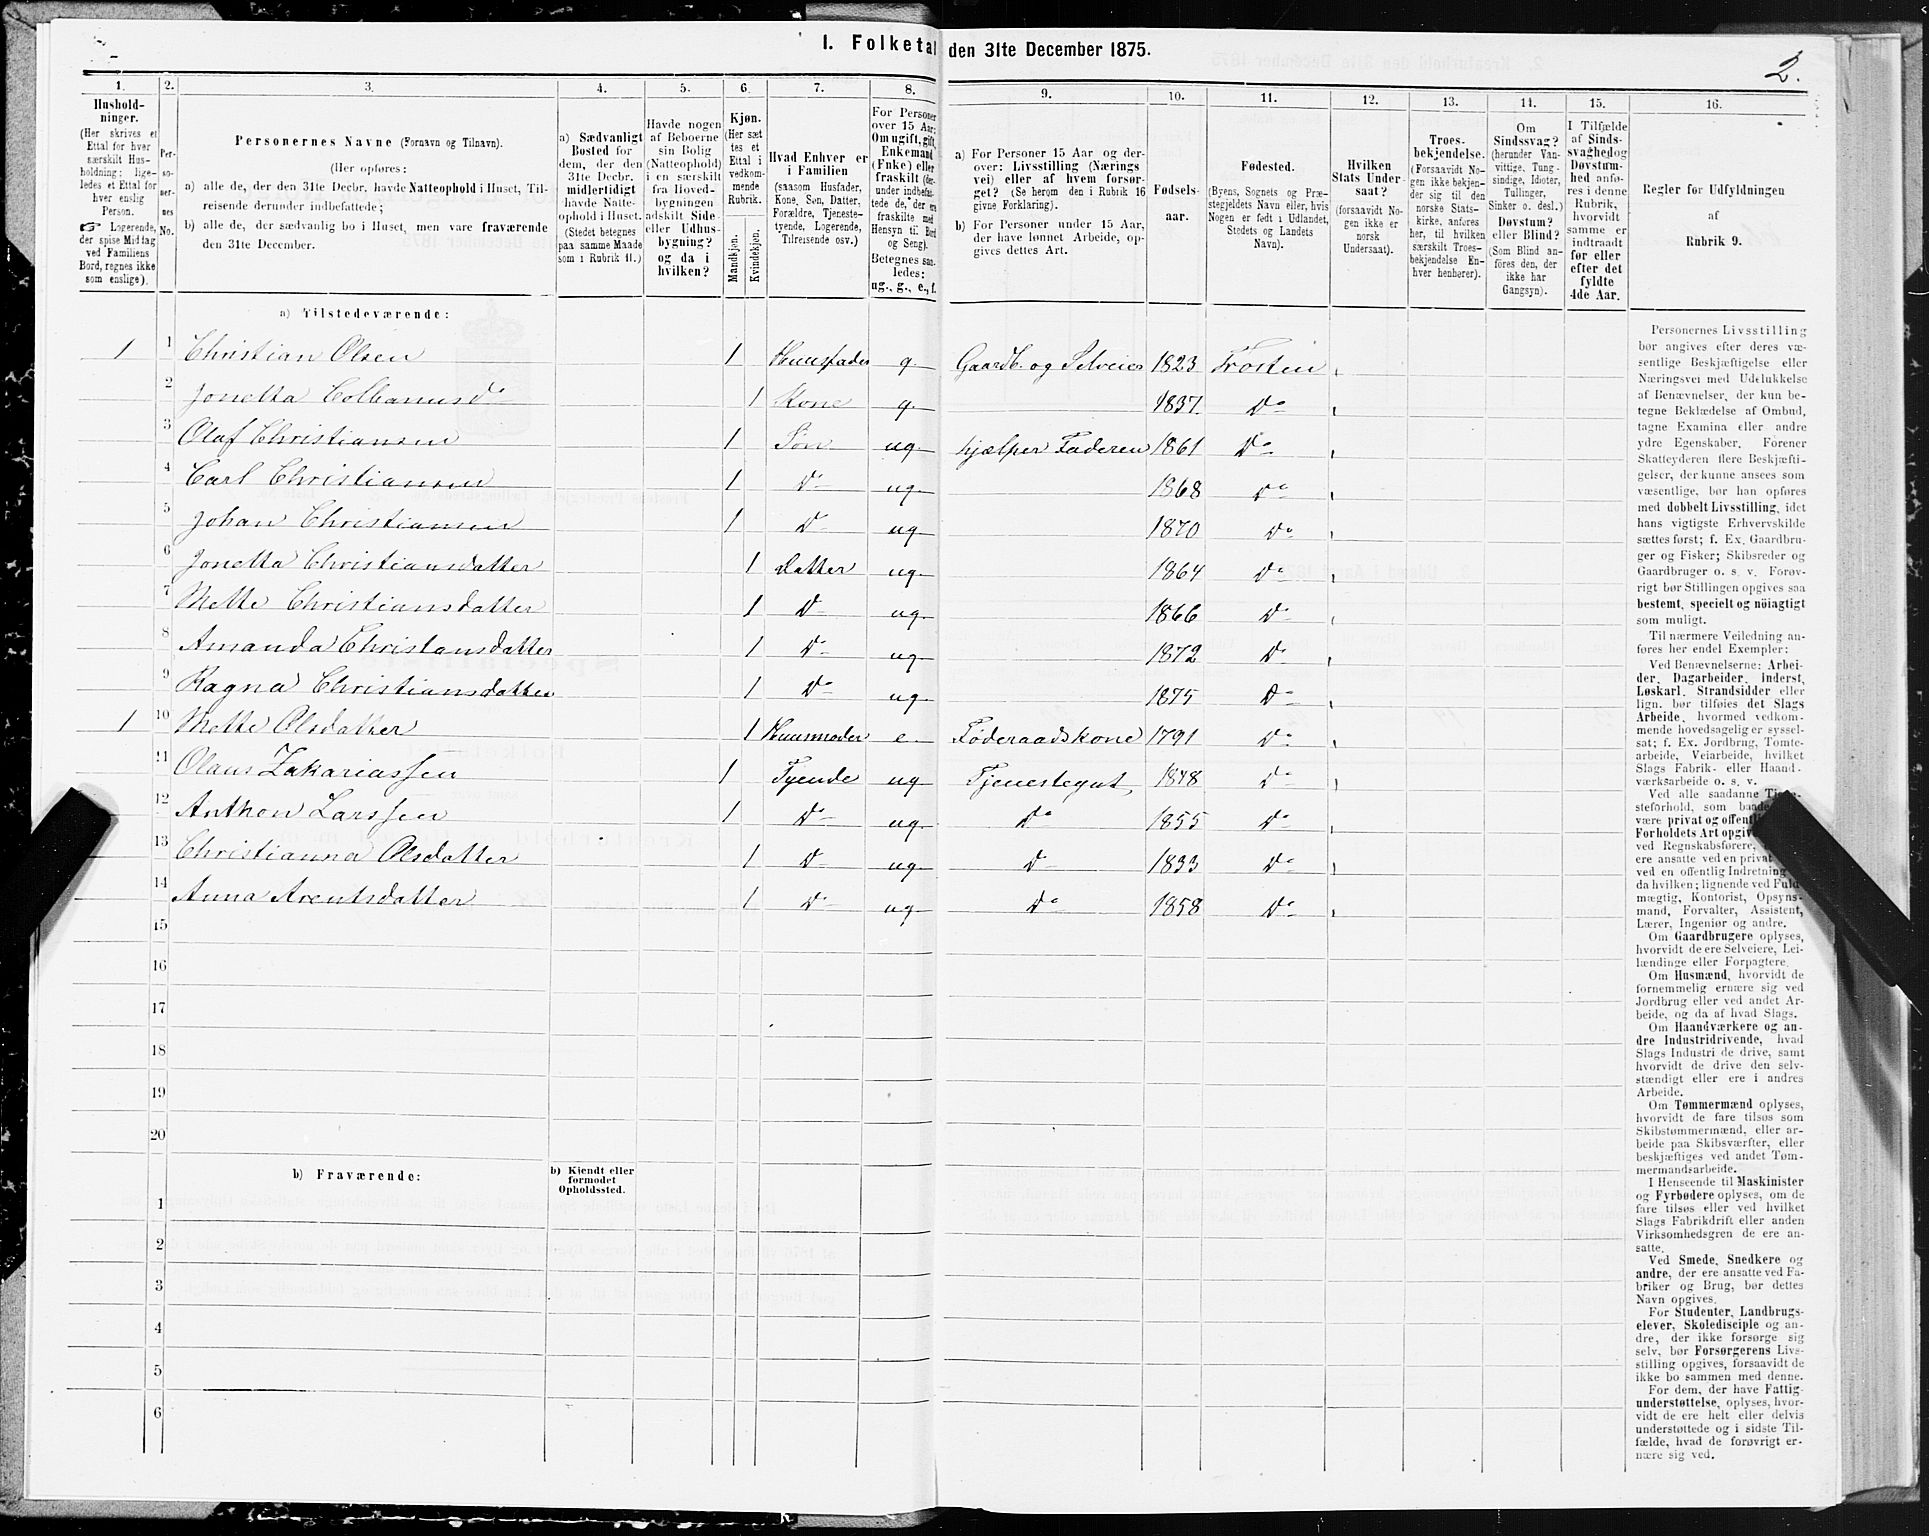 I. Folketal den 31te December 1875.
2.
1.
Hushold-
ninger.
(Her skrives et
Ettal for hver
særskilt Hus-
holdning; lige-
ledes et Ettal for
hver enslig
Person.
Logerende,
der spise Middag
ved Familiens
Bord, regnes ikke
som enslige).
2.
Per-
so-
ner-
nes
No.
3.
Personernes Navne (Fornavn og Tilnavn).
(Her opføres:
a) alle de, der den 31te Decbr. havde Natteophold i Huset, Til-
reisende derunder indbefattede;
b) alle de, der sædvanlig bo i Huset, men vare fraværende
den 31te December.
4.
a) Sædvanligt
Bosted for
dem, der den
31te Decbr.
midlertidigt
havde Natte-
ophold i Huset.
(Stedet betegnes
paa samme Maade
som i Rubrik 11.)
5.
Havde nogen
af Beboerne
sin Bolig
(Natteophold)
i en særskilt
fra Hoved-
bygningen
adskilt Side-
eller Udhus-
bygning?
og da i
hvilken?
6.
Kjøn.
(Her sæt-
tes et
Ettal i
vedkom-
mende
Rubrik.
Mandkjøn.
Kvindekjøn.
7.
Hvad Enhver er
i Familien
(saasom Husfader,
Kone, Søn, Datter,
Forældre, Tjeneste-
tyende, Logerende,
Tilreisende osv.)
8.
For Personer
over 15 Aar:
Om ugift, gift,
Enkemand
(Enke) eller
fraskilt (der-
under indbefat-
tede de, der ere
fraskilte med
Hensyn til Bord
og Seng).
Betegnes saa-
ledes:
ug., g., e., f.
9.
a) For Personer 15 Aar og der-
over: Livsstilling (Nærings
vei) eller af hvem forsør-
get? (Se herom den i Rubrik 16
givne Forklaring).
b) For Personer under 15 Aar,
der have lønnet Arbeide, op-
gives dettes Art.
10.
Fødsels-
aar.
11.
Fødested.
(Byens, Sognets og Præ-
stegjeldets Navn eller, hvis
Nogen er født i Udlandet,
Stedets og Landets
Navn).
12.
Hvilken
Stats Under-
saat?
(forsaavidt No-
gen ikke er
norsk
Undersaat).
13.
Troes-
bekjendelse.
(Forsaavidt No-
gen ikke bekjen-
der sig til den
norske Stats-
kirke, anføres
her, til hvilken
særskilt Troes-
bekjendelse En-
hver henhører).
14.
Om
Sindssvag?
(herunder Van-
vittige, Tung-
sindige, Idioter,
Tullinger,
Sinker o. desl.)
Døvstum?
eller Blind?
(Som Blind an-
føres den, der
ikke har
Gangsyn).
15.
I Tilfælde
af Sinds-
svaghed og
Døvstum-
hed anfø-
res i denne
Rubrik,
hvorvidt
samme er
indtraadt
før eller
efter det
fyldte
4de Aar.
16.
Regler for Udfyldningen
af
Rubrik 9.
a) Tilstedeværende:
1 1 Christian Olsen 1 Huusfader g. Gaardb. og Selveier 1823 Frosten
2 Jonetta Colbanusd 1 Kone g. 1837 Do
3 Olaf Christiansen 1 Søn ug. hjælper Faderen 1861 Do
4 Carl Christiansen 1 Do ug. 1868 Do
5 Johan Christiansen 1 Do ug 1870 Do
6 Jonetta Christiansdatter 1 Datter ug. 1864 Do
7 Mette Christiansdatter 1 Do ug. 1866 Do
8 Amanda Christansdatter 1 Do ug 1872 Do
9 Ragna Christiansdatter 1 Do ug 1875 Do
1 10 Mette Olsdatter 1 Huusmoder e. Føderaadskone 1791 Do
11 Olaus Zakariassen 1 Tyende ug Tjenestegut 1848 Do
12 Anthon Larssen 1 Do ug Do 1855 Do
13 Christianna Olsdatter 1 Do ug Do 1833 Do
14 Anna Arentsdatter 1 Do ug Do 1858 Do
15
16
17
18
19
20
b) Fraværende:
b) Kjendt eller
formodet
Opholdssted.
1
2
3
4
5
6
Personernes Livsstilling
bør angives efter deres væ-
sentlige Beskjæftigelse eller
Næringsvei med Udelukkelse
af Benævnelser, der kun be-
tegne Beklædelse af Ombud,
tagne Examina eller andre
ydre Egenskaber. Forener
Skatteyderen flere Beskjæfti-
gelser, der kunne ansees som
væsentlige, bør han opføres
med dobbelt Livsstilling, idet
hans vigtigste Erhvervskilde
sættes først; f. Ex. Gaardbru-
ger og Fisker; Skibsreder og
Gaardbruger o. s. v. Forøv-
rigt bør Stillingen opgives saa
bestemt, specielt og nöiagtigt
som muligt.
Til nærmere Veiledning an-
føres her endel Exempler:
Ved Benævnelserne: Arbei-
der, Dagarbeider, Inderst,
Løskarl, Strandsidder eller
lign. bør tilføies det Slags
Arbeide, hvormed vedkom-
mende hovedsagelig er syssel-
sat; f. Ex. Jordbrug, Tomte-
arbeide, Veiarbeide, hvilket
Slags Fabrik- eller Haand-
værksarbeide o. s. v.
Ved alle saadanne
steforhold, som
være privat og
Forholdets Art
ved Regnskabsførere,
ere ansatte ved en privat
ved en offentlig Indretning
da hvilken; lignende ved Fuld-
mægtig, Kontorist, Opsyns-
mand, Forvalter, Assistent,
Lærer, Ingeniør og andre.
Om Gaardbrugere oplyses,
hvorvidt de ere Selveiere, Lei-
lændinge eller Forpagtere.
Om Husmænd, hvorvidt de
fornemmelig ernære sig ved
Jordbrug eller ved andet Ar-
beide, og da af hvad Slags.
Om Haandværkere og an-
dre Industridrivende, hvad
Slags Industri de drive, samt
hvorvidt de drive den selv-
stændigt eller ere i andres
Arbeide.
Om Tømmermænd oplyses,
hvorvidt de fare tilsøs som
Skibstømmermænd, eller ar-
beide paa Skibsværfter, eller
beskjæftiges ved andet Tøm-
mermandsarbeide.
I Henseende til Maskinister
og Fyrbødere oplyses, om de
fare tilsøs eller ved hvilket
Slags Fabrikdrift eller anden
Virksomhedsgren de ere an-
satte.
Ved Smede, Snedkere og
andre, der ere ansatte ved Fa-
briker og Brug, bør dettes
Navn opgives.
For Studenter, Landbrugs-
elever, Skoledisciple og an-
dre, der ikke forsørge sig
selv, bør Forsørgerens Livs-
stilling opgives, forsaavidt de
ikke bo sammen med denne.
For dem, der have Fattig-
understøttelse, oplyses, hvor-
vidt de ere helt eller delvis
understøttede og i sidste Til-
fælde, hvad de forøvrigt er-
nære sig ved.